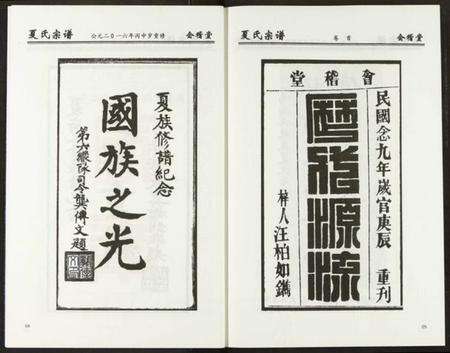 夏氏宗谱 公元二〇一六年丙申岁重修 会稽堂
夏族修譜紀念
國族之光
第六縱隊司令龔傳文題
夏氏宗谱 卷首 会稽堂
會稽堂
民國念九年歲官庚辰 重刊
源流
梓人汪柏如鐫